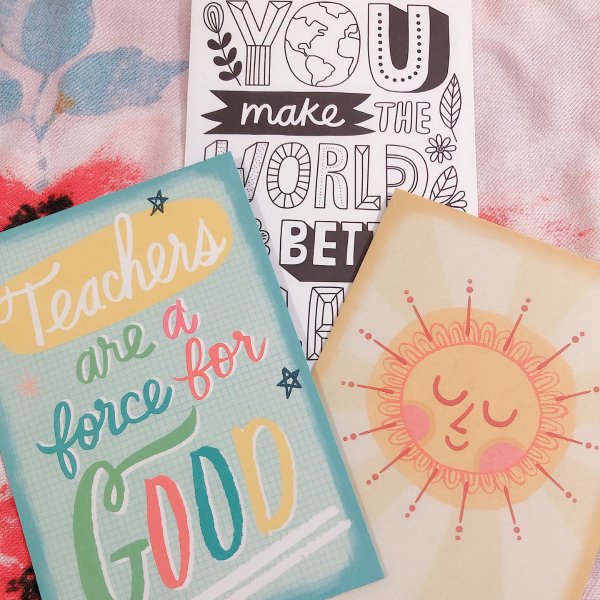 YOU
make THE
WORLD
BETT
Teachers
are a
force for
GOOD